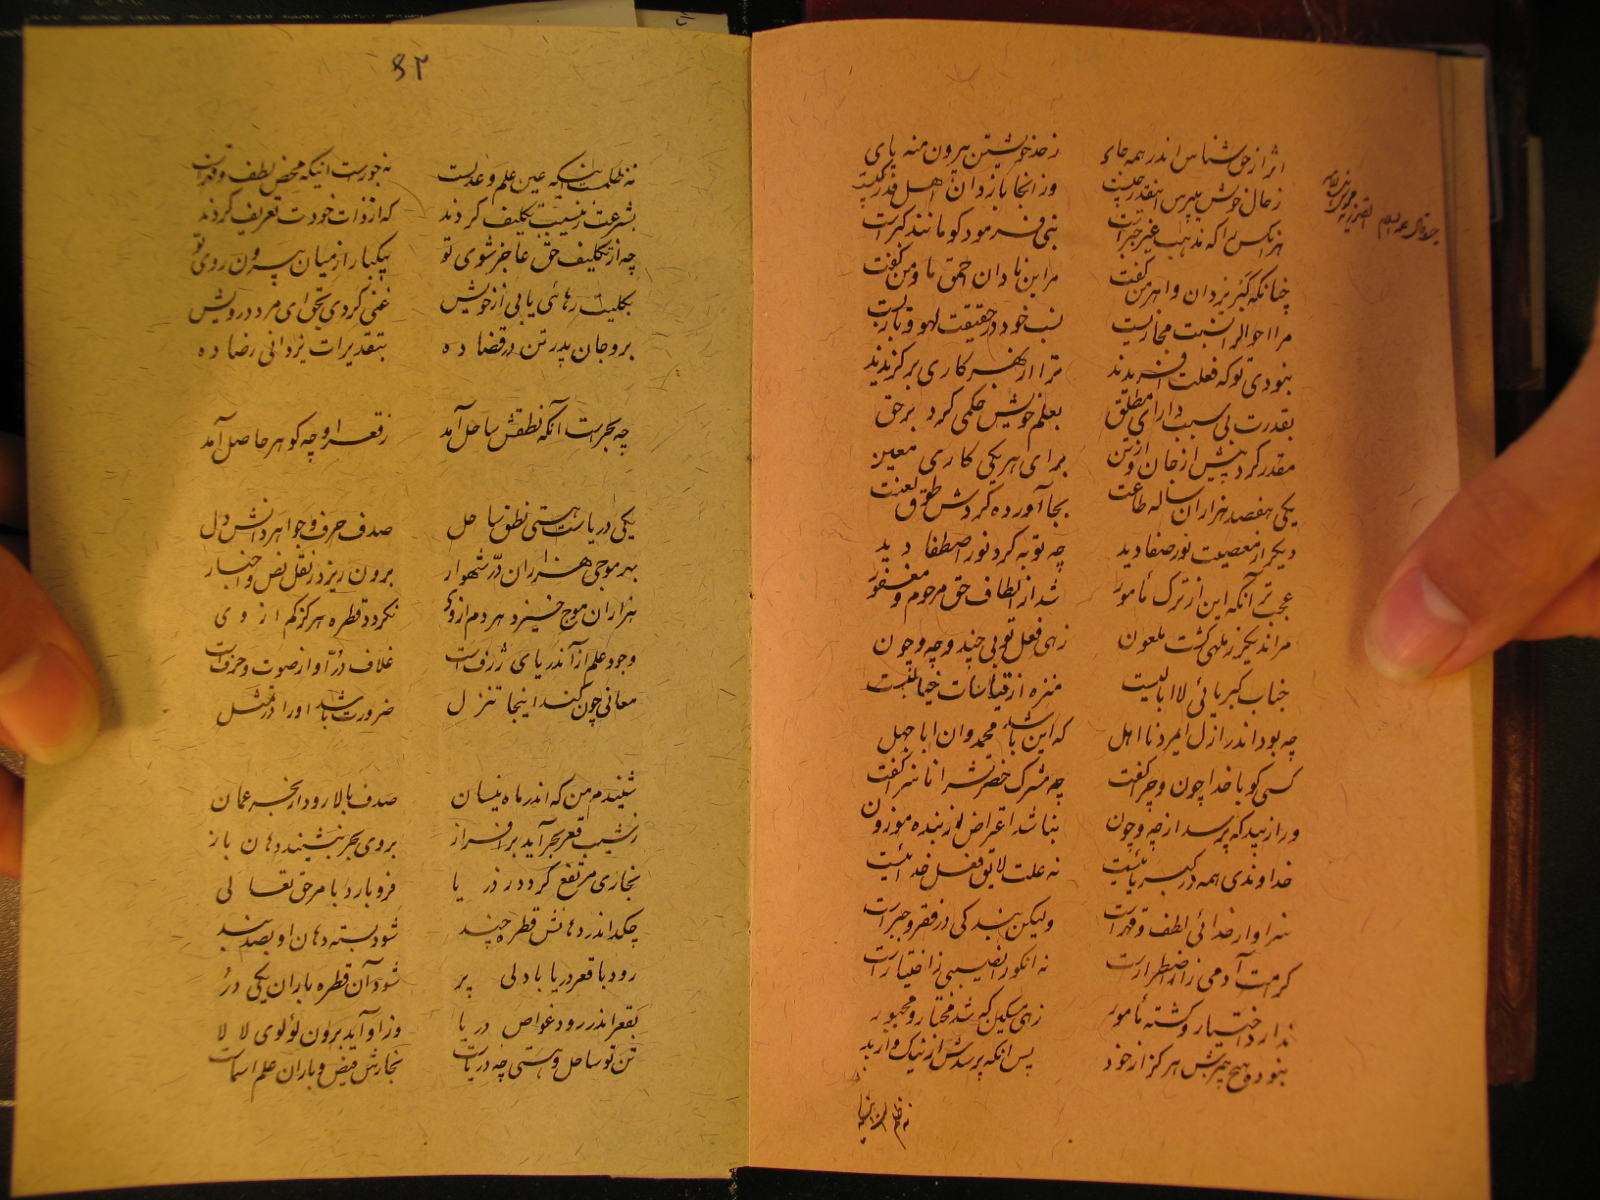 اثر از حق شناس اندر همه جای
ز حد خویشتن بیرون منه پای
ز حال خویش پرس اینقدر چیست
وز آنجا باز دان اهل قدر کیست
هر آنکس را که مذهب غیر جبر است
نبی فرمود کو مانند کبر است
چنانکه گبر یزدان و اهرمن گفت
مر این نادان احمق ما و من گفت
بما احوال را نسبت مجازیست
نسب خود در حقیقت لهو و بازیست
نبودی تو که فعلت آفریدند
ترا از بهر کاری برگزیدند
بقدرت بی سبب دارای مطلق
بعلم خویش حکمی کرد بر حق
مقدر کرد پیش از جان و از تن
برای هر یکی کاری معین
یکی هفصد هزاران ساله طاعت
بجا آورد کردش طوق لعنت
دیگر از معصیت نور صفا دید
چه توبه کرد نور اصطفا دید
عجب تر آنکه این از ترک مأمور
شد از الطاف حق مرحوم و مغفور
مر اندیگر ز منهی گشت ملعون
زهی فعل تو بی چند و چه و چون
جناب کبریائی لا ابالیست
منزه از قیاسات خیالیست
چه بود اندر ازل ایمرد نا اهل
که این باشد محمد وان ابا جهل
کسی کو با خدا چون و چرا گفت
چه مشرک حضرتش را ناسزا گفت
ورا زیبد که پرسد از چه و چون
نباشد اعتراض از بنده موزون
خداوندی همه در کبریائیست
نه علت لایق فعل خدائیست
سزاوار خدائی لطف و قهر است
ولیکن بندگی در فقر و جبر است
کرامت آدمی را ز اضطرار است
نه انکو را نصیبی ز اختیار است
ندارد اختیار و گشته مأمور
زهی مسکین که شد مختار و مجبور
نبوده هیچ چیزش هرگز از خود
پس آنکه پرسدش از نیک و از بد
نه ظلمست اینکه
۵۲
نه ظلمست اینکه عین علم و عدلست
نه جور است اینکه محض لطف و قهر است
بشرعت زین سبب تکلیف کردند
که از ذات خودت تعریف کردند
چه از تکلیف حق عاجز شوی تو
بیکبار از میان بیرون روی تو
بکلیت رهائی یابی از خویش
غنی گردی بحق ای مرد درویش
برو جان پدر تن در قضا ده
بتقدیرات یزدانی رضا ده
چه بحر است آنکه نطقش ساحل آمد
ز قعر او چه گوهر حاصل آمد
یکی دریاست هستی نطق ساحل
صدف حرف و جواهر دانش دل
بهر موجی هزاران درّ شهوار
برون ریزد ز نقل نص و اخبار
هزاران موج خیزد هر دم از وی
نگردد قطره هرگز کم از وی
وجود علم از آندریای ژرف است
غلاف درّ او از صوت و حرف است
معانی چون کند اینجا تنزل
ضرورت باشد او را در تمثل
شنیدم من که اندر ماه نیسان
صدف بالا رود از بحر عمان
ز شیب قعر بحر آید بر افراز
بروی بحر بنشیند دهان باز
بخاری مرتفع گردد ز دریا
فرو بارد بامر حق تعالی
چکد اندر دهانش قطره چند
شود بسته دهان او بصد بند
رود با قعر دریا با دلی پر
شود آن قطره باران یکی درّ
بقعر اندر رود غواص دریا
وز او آید برون لؤلوی لالا
تن تو ساحل و هستی چه دریاست
بخارش فیض و باران علم اسماست